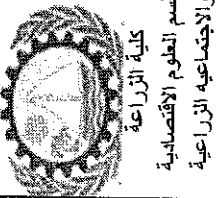 كلية الزراعة
قسم العلوم الاقتصادية
والاجتماعية الزراعية